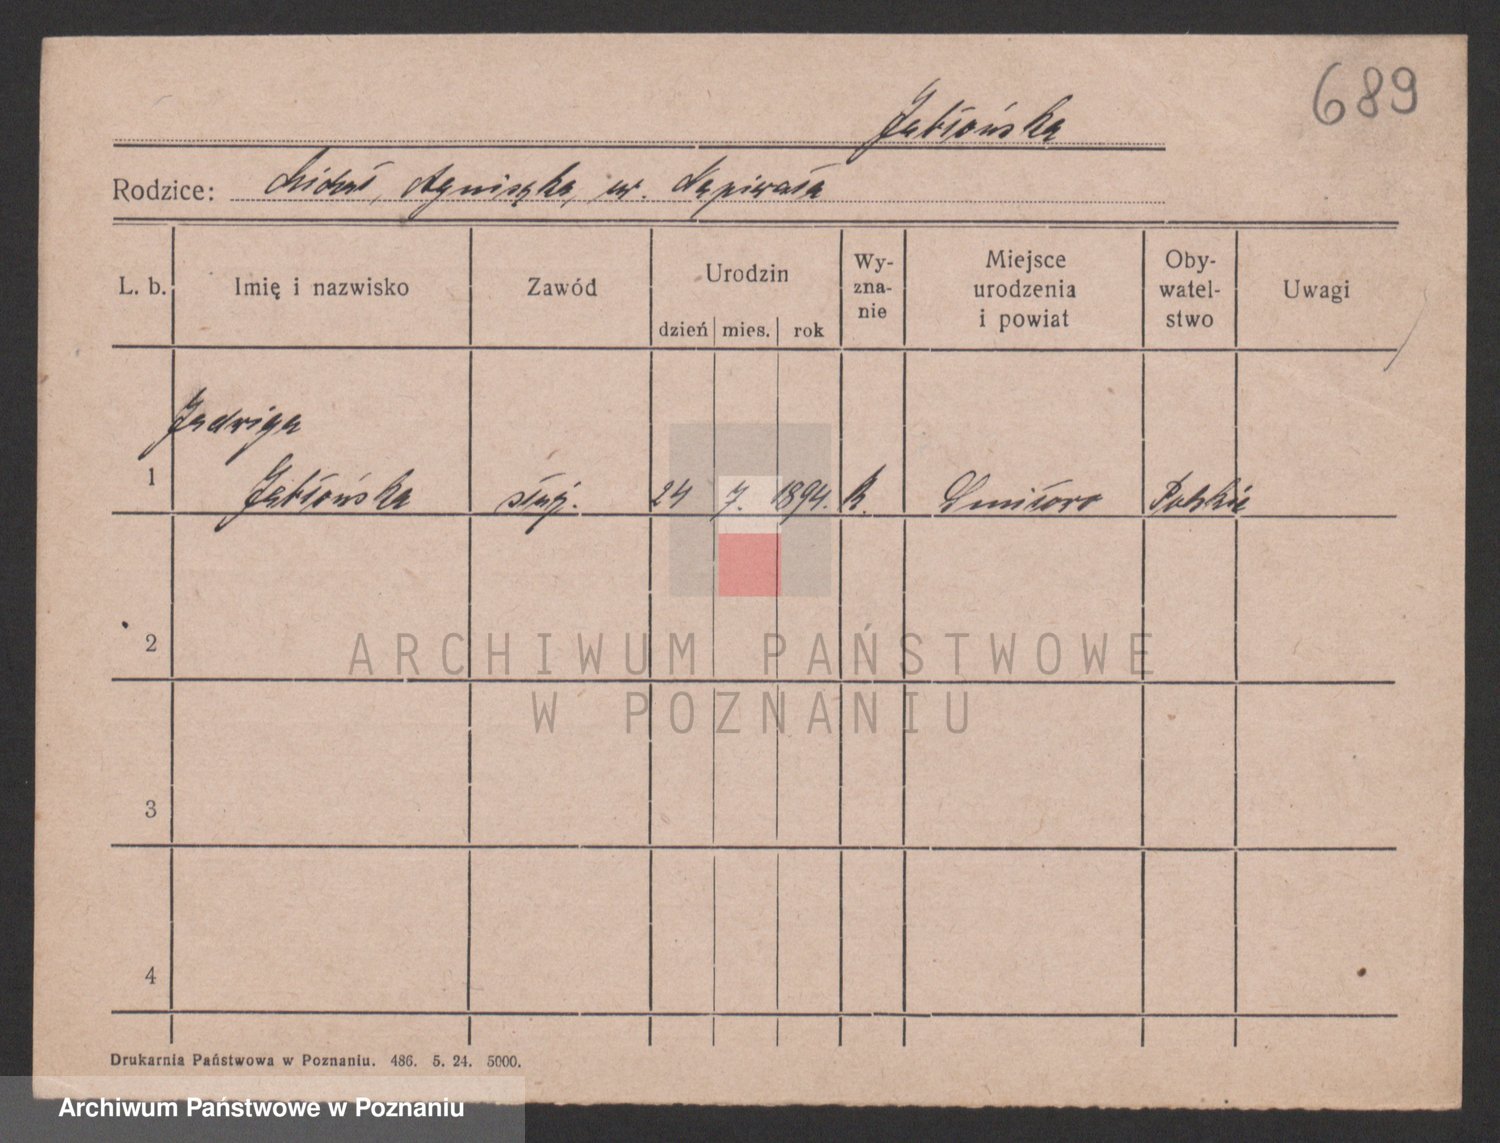 689
Jabłońska
Rodzice: Michał, Agnieszka, ur. Napierała
L. b. Imię i nazwisko Zawód Urodzin dzień mies. rok Wy-zna-nie Miejsce urodzenia i powiat Oby-watel-stwo Uwagi
Jadwiga
1 Jabłońska służ. 24 7. 1894. k. Polskie
2
ARCHIWUM PAŃSTWOWE
W POZNANIU
3
4
Drukarnia Państwowa w Poznaniu. 486. 5. 24. 5000.
Archiwum Państwowe w Poznaniu